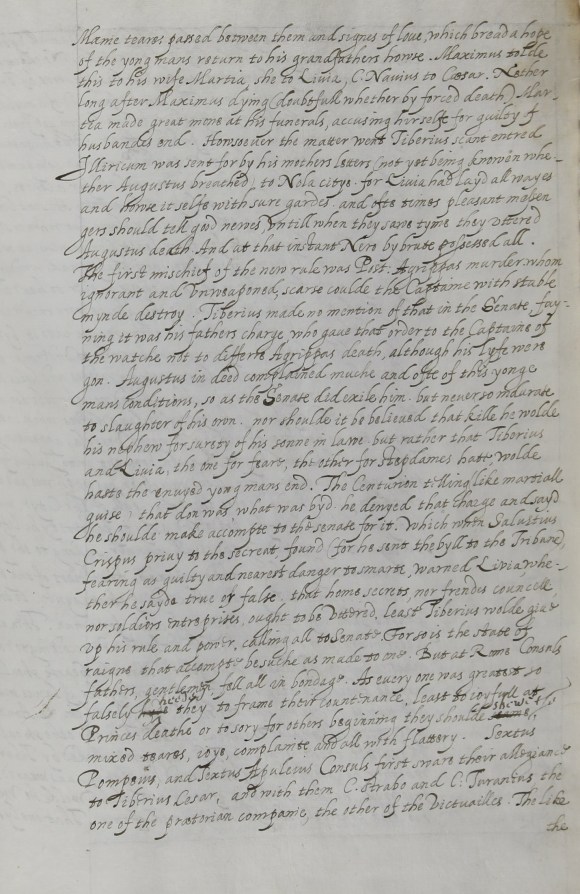 Manie teares passed between them and signes of love, which bread a hope
of the yong mans return to his grandfathers howse. Maximus tolde
this to his wife Martia, she to Livia, C. Navius to Cæsar. Nether
long after Maximus dying (doubtfull whether by forced death) Mar-
tia made great mone at his funerals, accusing hirselfe for guilty of
husbandes end. Howsoever the matter went Tiberius scant entred
Illiricum was sent for by his mothers letters (not yet being knowen whe-
ther Augustus breathed) to Nola citye. for Livia had layd all wayes
and howse it selfe with sure gardes. and ofte times pleasant messen
gers should tell good newes, untill when they sawe tyme they uttered
Augustus death. And at that instant Nero by brute possessed all.
The first mischief of the new rule was Post. Agrippas murder whom
ignorant and unweaponed, scarse coulde the Captaine with stable
mynde destroy. Tiberius made no mention of that in the Senate, fay-
ning it was his fathers charge, who gave that order to the Captaine of
the watche not to differre Agrippas death, although his lyfe were
gon. Augustus in deed complained muche and ofte of this yonge
mans conditions, so as the Senate did exile him. but never so indurate
to slaughter of his own. nor shoulde it be believed that kille he wolde
his nephew for surety of his sonne in lawe. but rather that Tiberius
and Livia, the one for feare, the other for stepdames hate wolde
haste the envyed yong mans end. The Centurion telling like martiall
guise, that don was, what was byd. he denyed that charge and sayd
he shoulde make accompte to the senate for it. Which when Salustius
Crispus privy to the secreat, found (for he sent the byll to the Tribune)
fearing as guilty and nearest danger to smarte, warned Livia, whe-
ther he sayde true or false. that home secrets nor frendes councell,
nor soldiors entreprises, ought to be uttered, least Tiberius wolde give
up his rule and power, calling all to Senate. For so is the state of
raigne that accompte be suche as made to one. But at Rome Consuls
fathers, gentlemen fall all in bondage. As every one was greatest so
falsely hiede they to frame their countenance, least to ioyfull at
Princes deathe or to sory for others beginning they shoulde shewe.
mixed teares, ioye, complainte and all with flattery. Sextus
Pompeius, and Sextus Apuleius Consuls first sware their allegiance
to Tiberius Cesar, and with them C. Strabo and C. Turanius the
one of the prætorian companie, the other of the Victuailles. The like
the